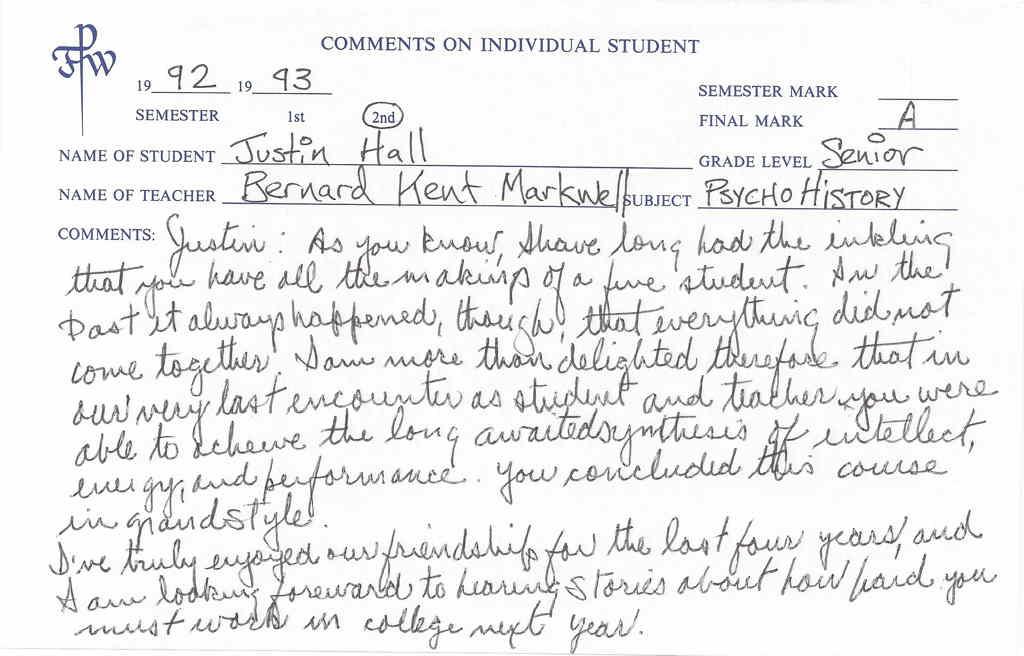 FPW
COMMENTS ON INDIVIDUAL STUDENT
19 92 19 93
SEMESTER MARK
SEMESTER 1st 2nd
FINAL MARK A
NAME OF STUDENT Justin Hall GRADE LEVEL Senior
NAME OF TEACHER Bernard Kent Markwell SUBJECT PSYCHOHISTORY
COMMENTS: Justin: As you know, I have long had the inkling
that you have all the makings of a fine student. In the
past it always happened, though, that everything did not
come together. I am more than delighted therefore that in
our very last encounter as student and teacher you were
able to acheive the long awaited synthesis of intellect,
energy, and performance. You concluded this course
in grand style.
I've truly enjoyed our friendship for the last four years, and
I am looking foreward to hearing stories about how hard you
must work in college next year.